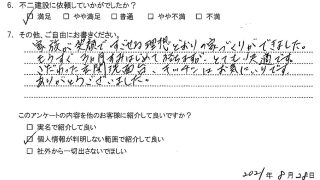 6. 不二建設に依頼していかがでしたか？
☑ 満足 □ やや満足 □ 普通 □ やや不満 □ 不満
7. その他、ご自由にお書きください。
家族が笑顔ですごせる理想どおりの家づくりができました。
もうすぐ3ヶ月すみはじめて立ちますが、とても快適です。
こだわった玄関、洗面台、キッチンはお気に入りです。
ありがとうございました。
このアンケートの内容を他のお客様に紹介して良いですか？
□ 実名で紹介して良い
☑ 個人情報が判明しない範囲で紹介して良い
□ 社外から一切出さないでほしい
2021年 8月 28日